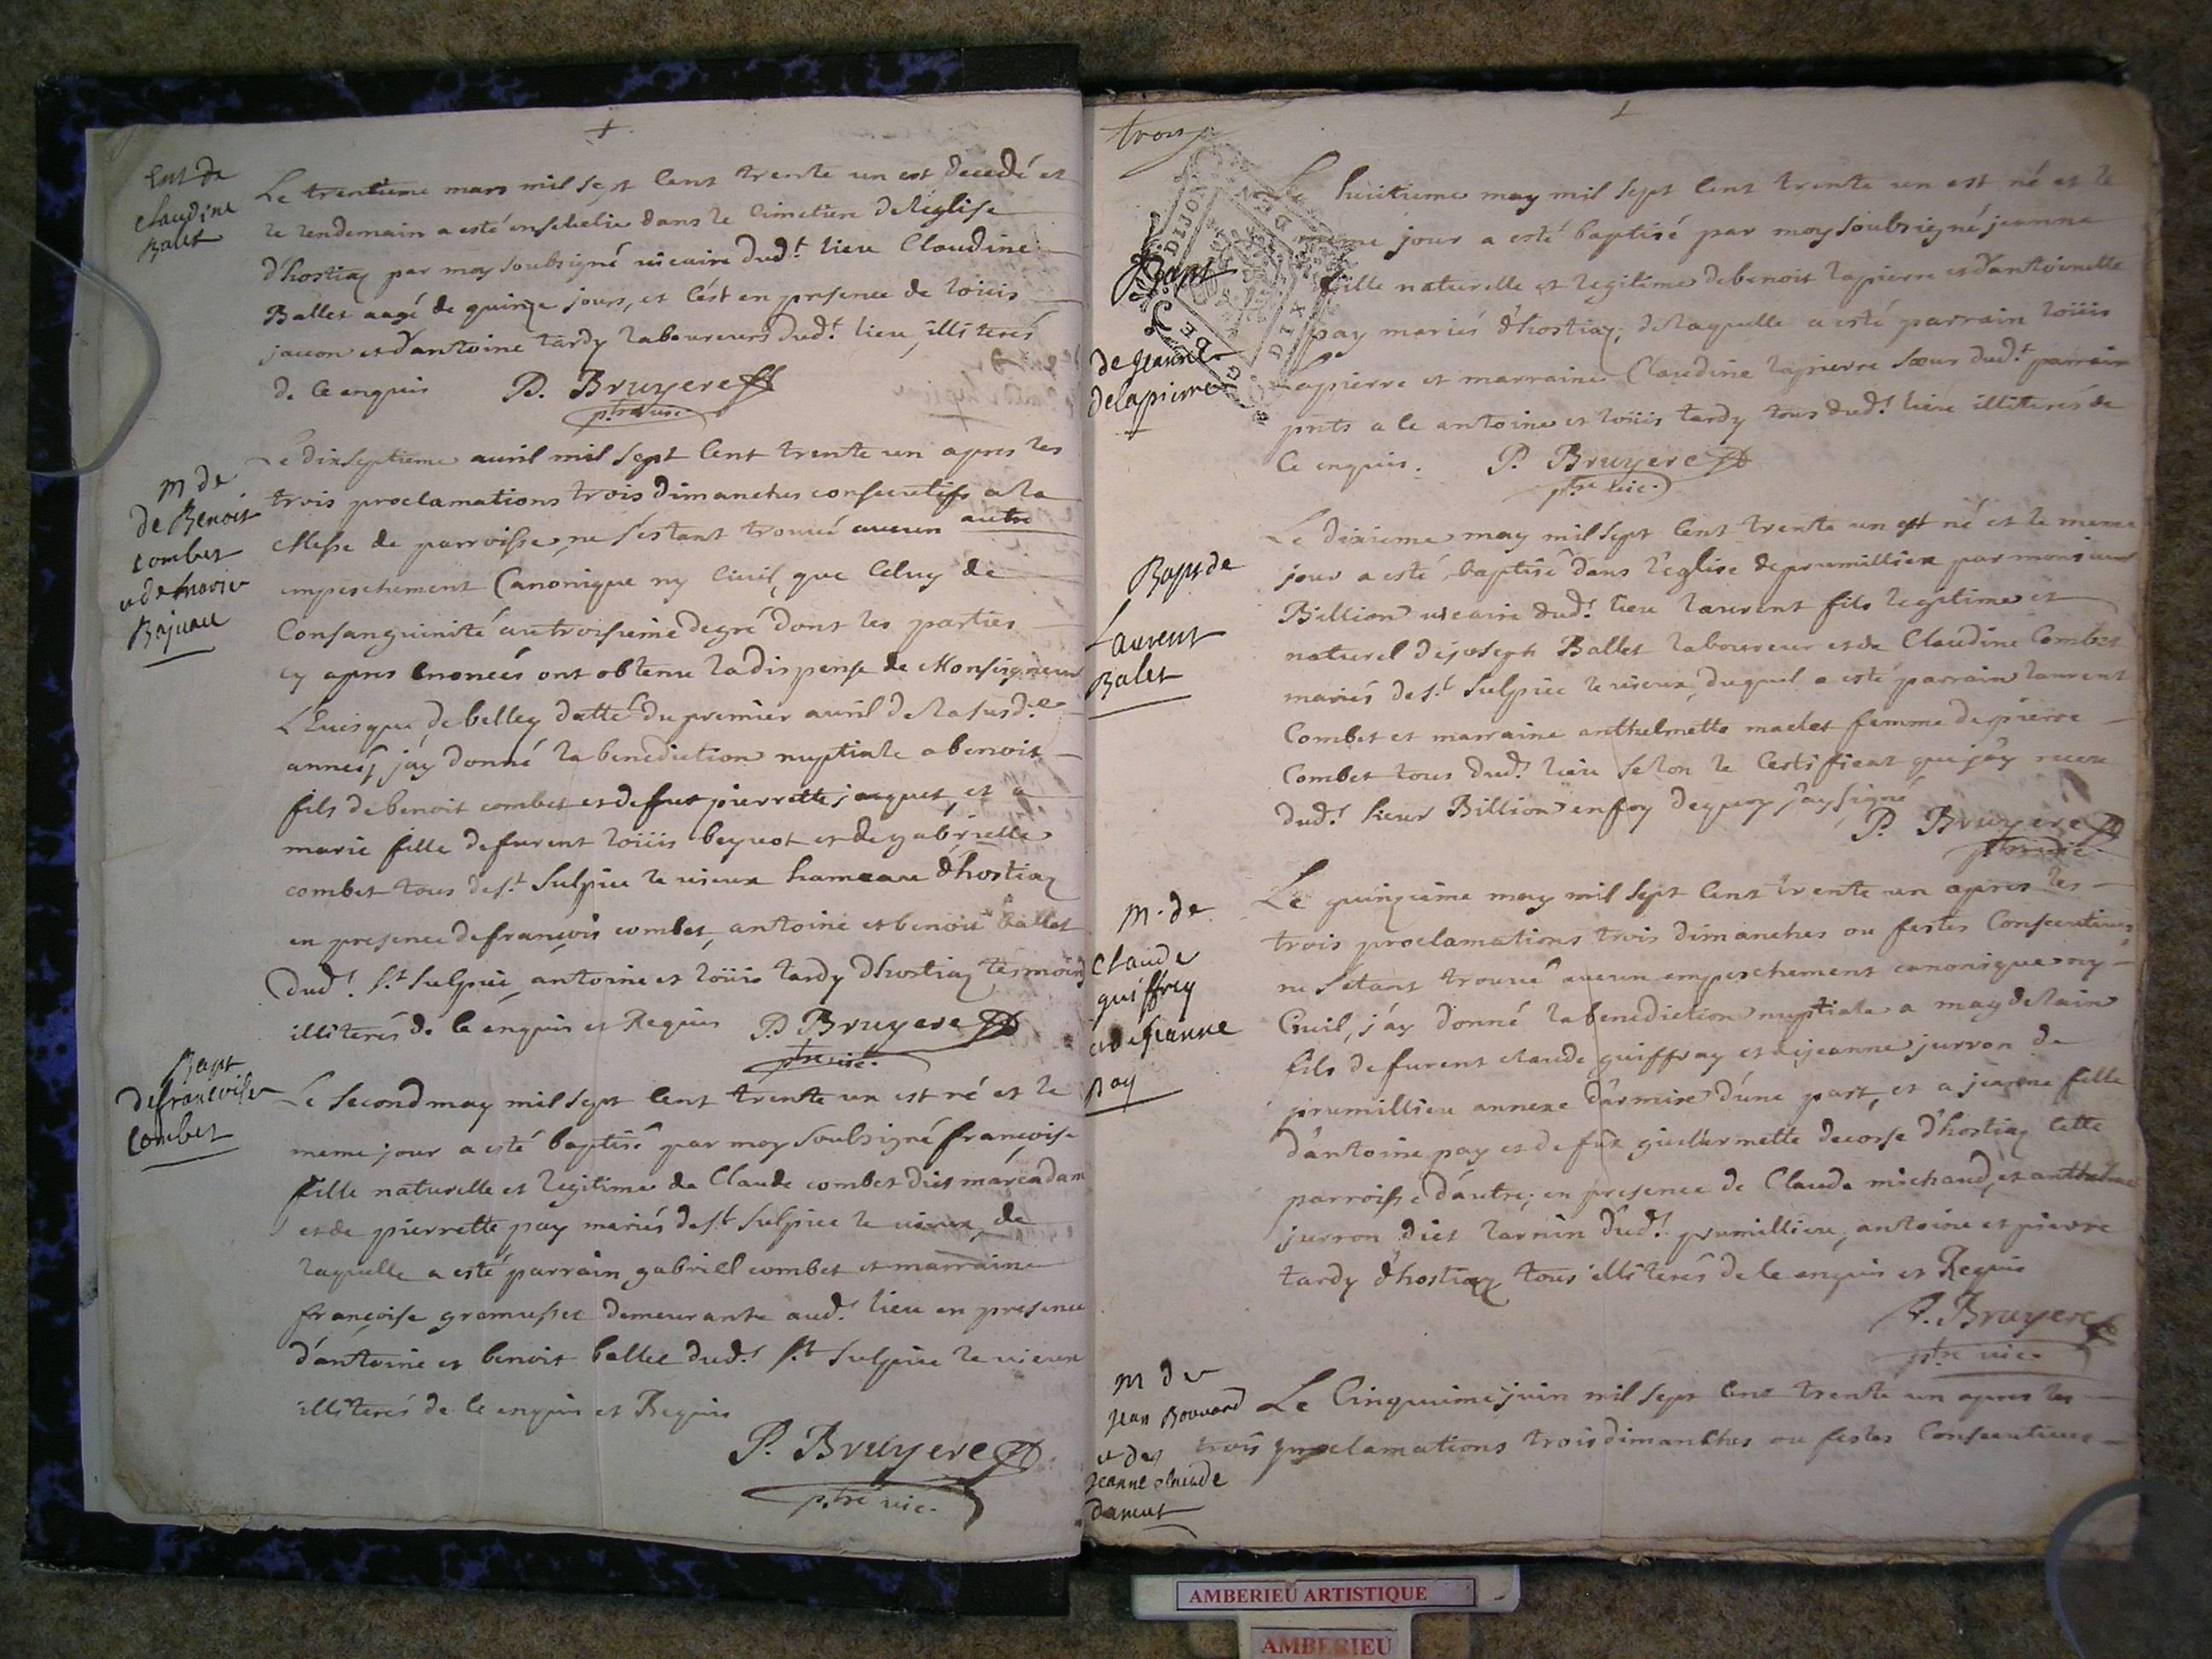 Ent de
Claudine
Balet
Le trentieme mars mil sept cent trente un est decedé et
le lendemain a esté enseuelie dans le cimetiere de l'église
d'hostiaz par moy soubsigné uicaire dud.t lieu Claudine
Ballet aagé de quinze jours, et c'est en presence de loüis
jacon et d'antoine tardy laboureurs dud.t lieu, illiterés
de ce enquis P. Bruyere
p.tre uic.
m de
de Benoit
combet
et de marie
Le dixseptieme auril mil sept cent trente un apres les
trois proclamations trois dimanches consecutifs a la
Messe de parroisse, ne s'estant trouué aucun autre
empeschement Canonique ny Ciuil, que Celuy de
Consanguinité au troisieme degré dont les parties
cy apres enoncées ont obtenu la dispense de Monseigneur
L'Euesque de belley datté du premier auril de la susd.e
année, j'ay donné la benediction nuptiale a benoit
fils de benoit combet et de fut pierrette jaquet, et a
marie fille de furent loüis et de gabrielle
combet tous de s.t Sulpice le uieux hameau d'hostiaz
en presence de françois combet, antoine et benoit ballet
dud.t s.t Sulpice, antoine et loüis tardy d'hostiaz tesmoins
illiterés de ce enquis et Requis P. Bruyere
p.tre uic.
Bapt
de francoise
Combet
Le second may mil sept cent trente un est né et le
meme jour a esté baptisé par moy soubsigné françoise
fille naturelle et legitime de Claude combet dict marcadam
et de pierrette pay mariés de s.t Sulpice le uieux, de
laquelle a esté parrain gabriel combet et marraine
françoise gramusset demeurante aud.t lieu en presence
d'antoine et benoit ballet dud.t s.t Sulpice le uieux
illiterés de ce enquis et Requis
P. Bruyere
p.tre uic.
trois
DIJON
DEN
DIX
Bapt
de Jeanne
delapierre
Le huitieme may mil sept cent trente un est né et le
meme jour a esté baptisé par moy soubsigné jeanne
fille naturelle et legitime de benoit lapierre et d'antoinette
pay mariés d'hostiaz, de laquelle a esté parrain loüis
Lapierre et marraine Claudine lapierre sœur dud.t parrain
pnts a ce antoine et loüis tardy tous dud.t lieu illiterés de
ce enquis. P. Bruyere
p.tre uic.
Bapt de
Laurent
Balet
Le dixieme may mil sept cent trente un est né et le meme
jour a esté baptisé dans l'église de prumillieu par monsieur
Billion uicaire dud.t lieu laurent fils legitime et
naturel de joseph Ballet laboureur et de Claudine Combet
mariés de s.t Sulpice le uieux, duquel a esté parrain laurent
Combet et marraine anthelmette maclet femme de pierre
Combet tous dud.t lieu selon le Certificat que j'ay receu
dud.t sieur Billion en foy de quoy j'ay signé
P. Bruyere
p.tre uic.
m. de
Claude
guiffrey
et de Jeanne
Pay
Le quinzieme may mil sept cent trente un apres les
trois proclamations trois dimanches ou festes Consecutiues,
ne s'etant trouué aucun empeschement canonique ny
Ciuil, j'ay donné la benediction nuptiale a may delain
fils de furent claude guiffray et de jeanne jurron de
prumillieu annexe d'armire d'une part, et a jeanne fille
d'antoine pay et de fut guillermette decorse d'hostiaz cette
parroisse d'autre; en presence de Claude michaud, et anthelme
jurron dict larnin dud.t prumillieu, antoine et pierre
tardy d'hostiaz tous illiterés de ce enquis et Requis
P. Bruyere
p.tre uic.
m de
Jean Bouuard
et de
Jeanne Claude
Le Cinquieme juin mil sept cent trente un apres les
trois proclamations trois dimanches ou festes Consecutiues
AMBERIEU ARTISTIQUE
AMBERIEU